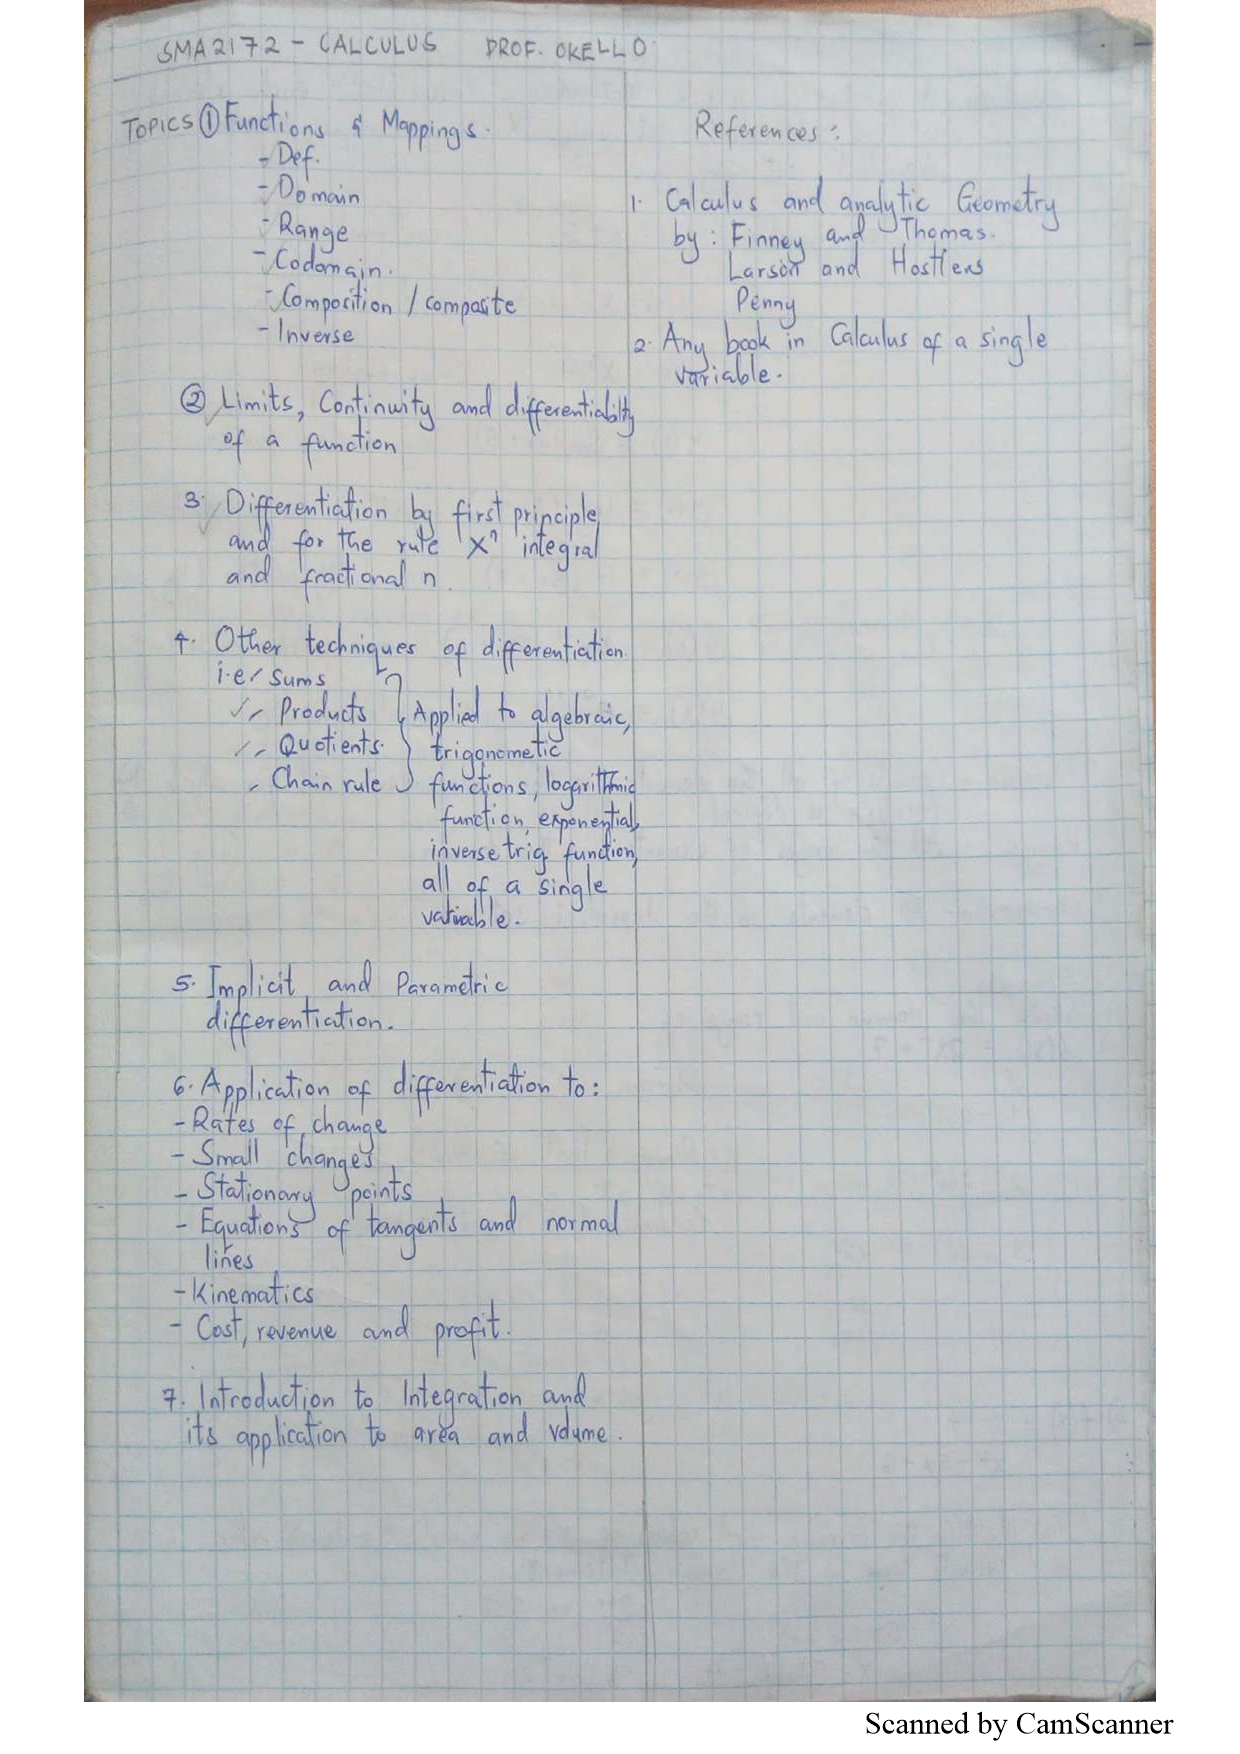 SMA2172 - CALCULUS PROF. OKELLO
TOPICS ① Functions & Mappings.
- Def.
- Domain
- Range
- Codomain.
- Composition / composite
- Inverse
② Limits, Continuity and differentiabilty
of a function
3. Differentiation by first principle
and for the rule xⁿ integral
and fractional n
4. Other techniques of differentiation.
i.e/ Sums
- Products
- Quotients.
- Chain rule
Applied to algebraic,
trigonometic
functions, logarithmic
function, exponential,
inverse trig function,
all of a single
variable.
5. Implicit and Parametric
differentiation.
6. Application of differentiation to:
- Rates of change
- Small changes
- Stationary points
- Equations of tangents and normal
lines
- Kinematics
- Cost, revenue and profit.
7. Introduction to Integration and
its application to area and volume.
References:
1. Calculus and analytic Geometry
by: Finney and Thomas.
Larson and Hostlers
Penny
2. Any book in Calculus of a single
variable.
Scanned by CamScanner